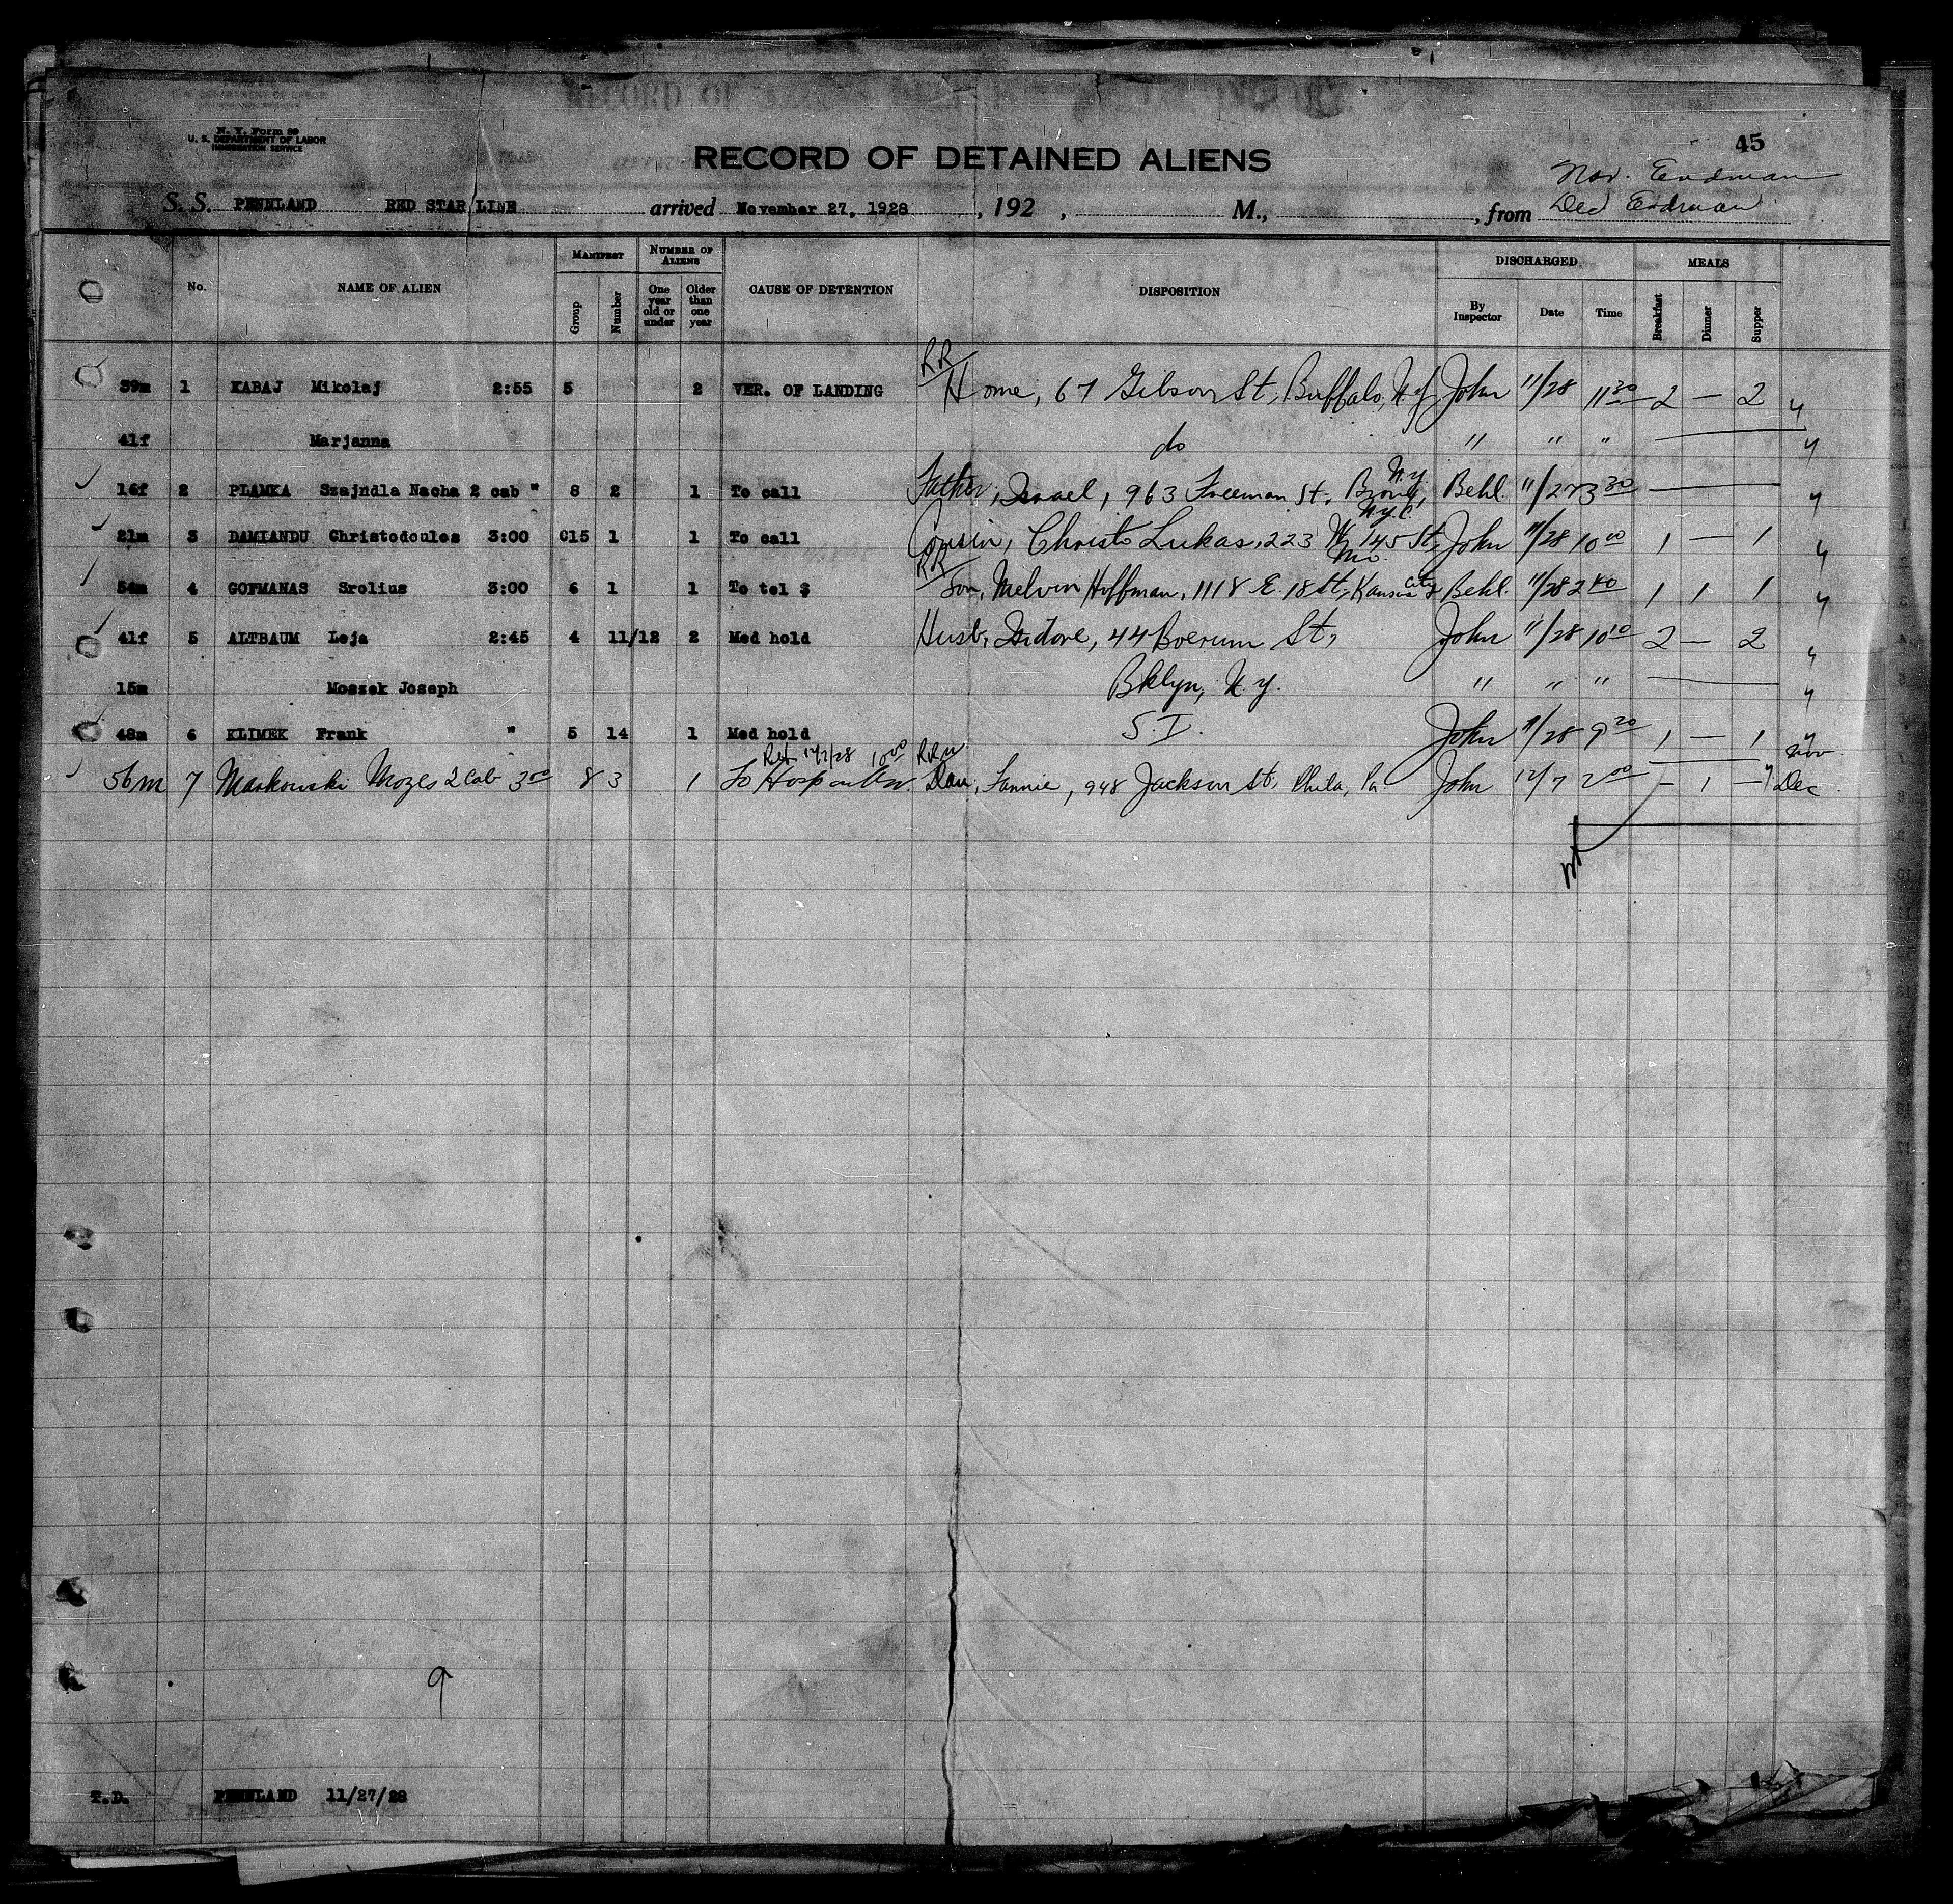 N. Y. Form 89
U. S. DEPARTMENT OF LABOR
IMMIGRATION SERVICE
45
RECORD OF DETAINED ALIENS
Nov. Erdman
S. S. PENNLAND RED STAR LINE arrived November 27, 1928, 192 , M., , from Dec Erdman
No. NAME OF ALIEN MANIFEST NUMBER OF ALIENS CAUSE OF DETENTION DISPOSITION DISCHARGED MEALS
Group Number One year old or under Older than one year By Inspector Date Time Breakfast Dinner Supper
RR
39m 1 KABAJ Mikolaj 2:55 5 2 VER. OF LANDING Home, 67 Gibson St, Buffalo, N.Y. John 11/28 11 30 2 — 2
41f Marjanna do " " "
16f 2 PLAMKA Szajndla Nacha 2 cab " 8 2 1 To call Father, Israel, 963 Freeman St, Bronx, N.Y. Behl. 11/27 3 30
N.Y.C.
21m 3 DAMIANDU Christodoulos 3:00 C15 1 1 To call Cousin, Christo Lukas, 223 W 145 St, John 11/28 10 00 1 — 1
RR Mo.
54m 4 GOFMANAS Srolius 3:00 6 1 1 To tel $ Son, Melvin Hoffman, 1118 E. 18 St, Kansas City Behl. 11/28 2 40 1 1 1
41f 5 ALTBAUM Leja 2:45 4 11/12 2 Med hold Husb, Isidore, 44 Boerum St, John 11/28 10 10 2 — 2
15m Moszek Joseph Bklyn, N.Y. " " "
48m 6 KLIMEK Frank " 5 14 1 Med hold S.I. John 11/28 9 20 1 — 1
Nov.
Ret. 12/7/28 10 00
56m 7 Markowski Mozes 2 Cab 3 00 8 3 1 To Hosp Dau, Fannie, 948 Jackson St, Phila, Pa. John 12/7 2 00 — 1 — Dec.
9
T.D. PENNLAND 11/27/28